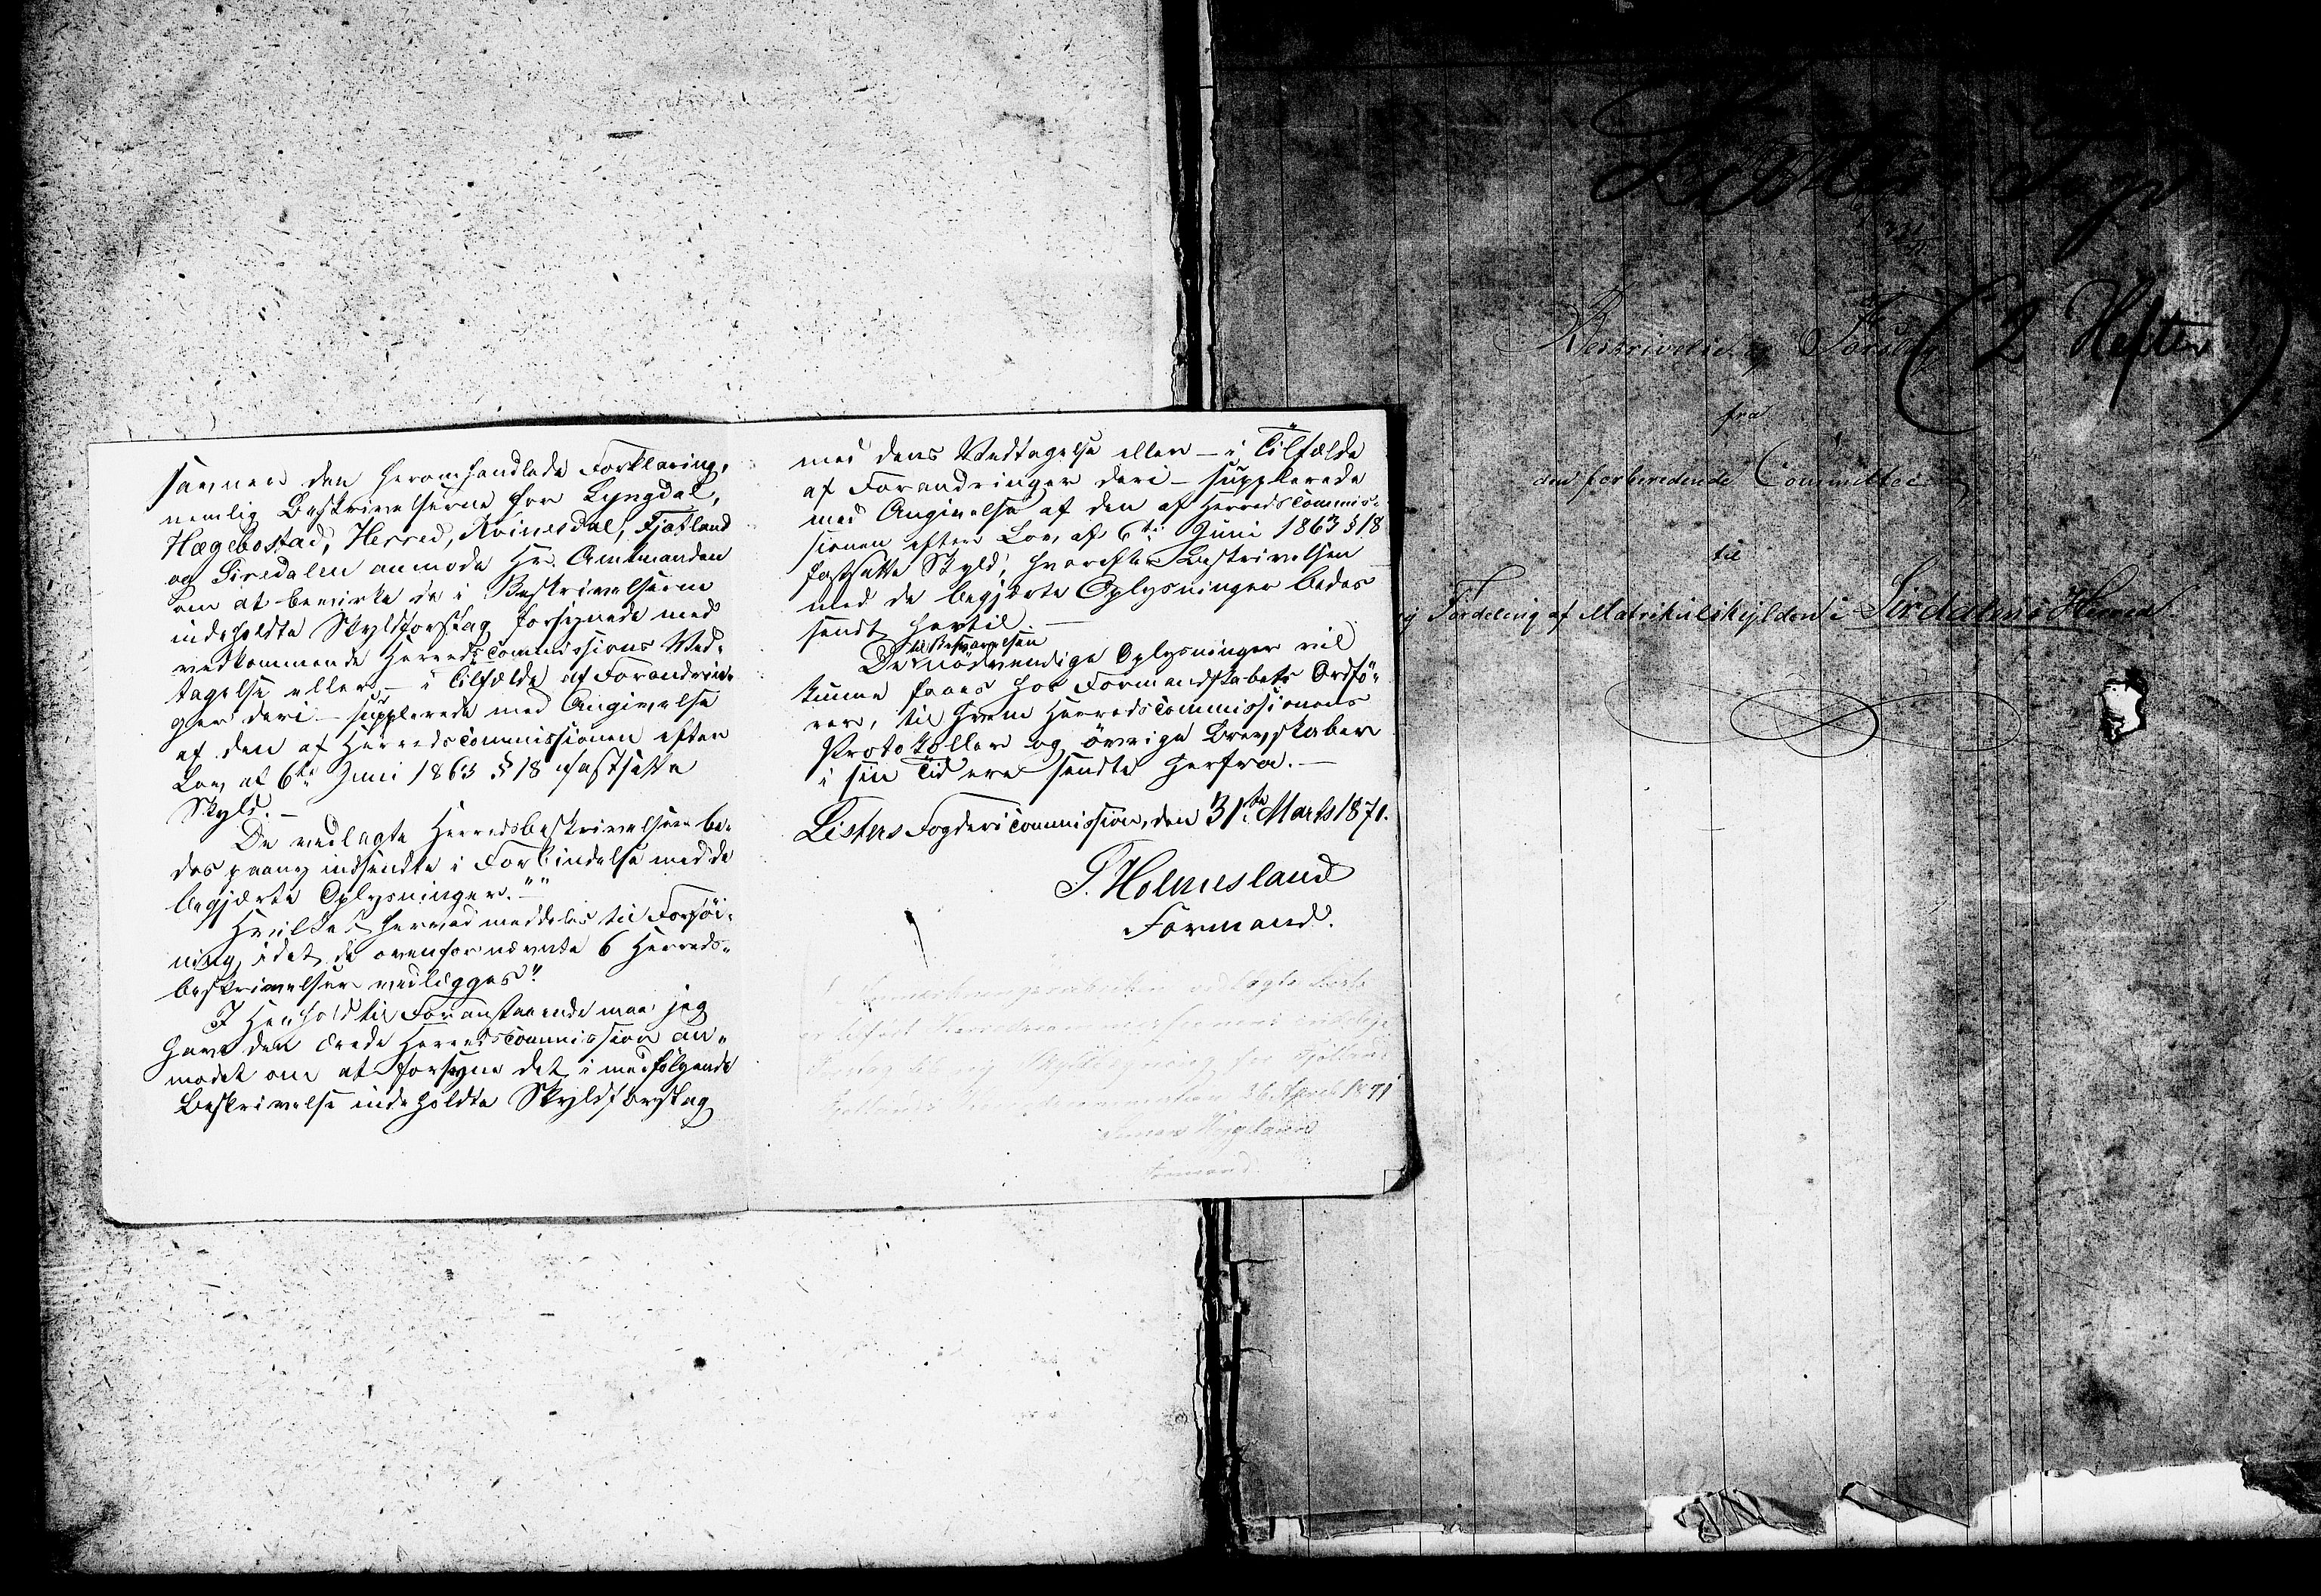 savnes den heromhandlede Forklaring,
nemlig Beskrivelserne for Lyngdal,
Hægebostad, Herred, Kvinesdal, Fjotland
og Siredalen anmode Hr. Amtmanden
om at bevirke de i Beskrivelserne
indeholdte Skyldforslag forsynede med
vedkommende Herredscommissions Ved-
tagelse eller – i Tilfælde af Forandrin-
ger deri – supplerede med Angivelse
af den af Herredscommissionen efter
Lov af 6te Juni 1863 § 18 fastsatte
Skyld. –
De vedlagte Herredsbeskrivelser be-
des paany indsendte i Forbindelse med de
begjærte Oplysninger."–"
Hvilket herved meddeles til Forføi-
ning, idet de ovenfor nævnte 6 Herreds-
beskrivelser vedlægges."
I Henhold til Foranstaaende maa jeg
have den ærede Herredscommission an-
modet om at forsyne det i medfølgende
Beskrivelse indeholdte Skyldforslag
med dens Vedtagelse eller – i Tilfælde
af Forandringer deri – supplerede
med Angivelse af den af Herredscommis-
sionen efter Lov af 6te Juni 1863 § 18
fastsatte Skyld, hvorefter Beskrivelsen
med de begjærte Oplysninger bedes
sendt hertil. –
til Besvarelsen
De nödvendige Oplysninger vil
kunne faaes hos Formandskabets Ordfö-
rer, til hvem Herredscommissionens
Protokoller og övrige Brevskaber
i sin Tid ere sendte herfra. –
Listers Fogdericommission, den 31te Marts 1871.
T. Holmesland
Formand.
26. April 1871
Formand
(2 Hefter)
Beskrivelse og Forslag
fra
den forberedende Committee
til
Fordeling af Matrikulskylden i Sirdalens Herred